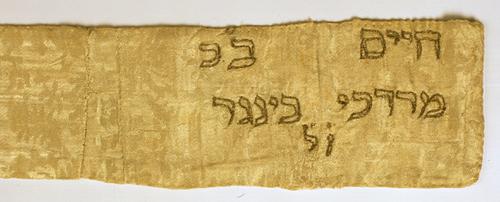 חיים ב̇כ̇
מרדכי בינגר
ז̇ל̇